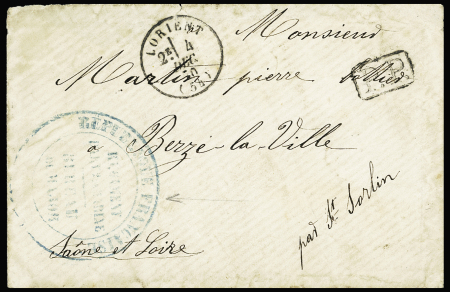 Monsieur
LORIENT
4
DEC
(54)
Martin pierre
P.P.
à Berzé-la-Ville
REPUBLIQUE FRANCAISE
par St Sorlin
Saône et Loire